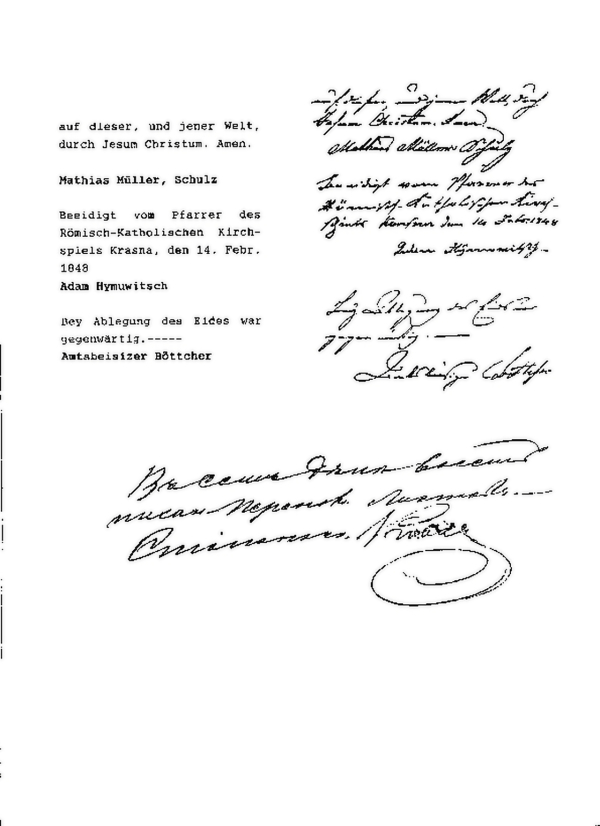 auf dieser, und jener Welt,
durch Jesum Christum. Amen.
Mathias Müller, Schulz
Beeidigt vom Pfarrer des
Römisch-Katholischen Kirch-
spiels Krasna, den 14. Febr.
1848
Adam Hymuwitsch
Bey Ablegung des Eides war
gegenwärtig.-----
Amtsbeisizer Böttcher
auf dieser, und jener Welt, durch
Jesum Christum. Amen
Mathias Müller Schulz
Beeidigt vom Pfarrer des
Römisch-Katholischen Kirch-
spiels Krasna den 14 Febr. 1848
Adam
Bey Ablegung des Eides war
gegenwärtig. —
Böttcher
Въ семъ
писан